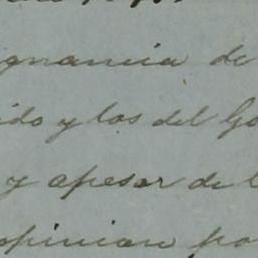 gnancia de
ido y las del Go
y apesar de l
opinion po